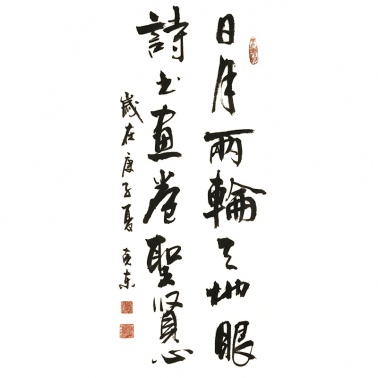 日月兩輪天地眼
詩書畫卷聖賢心
歲在庚子夏